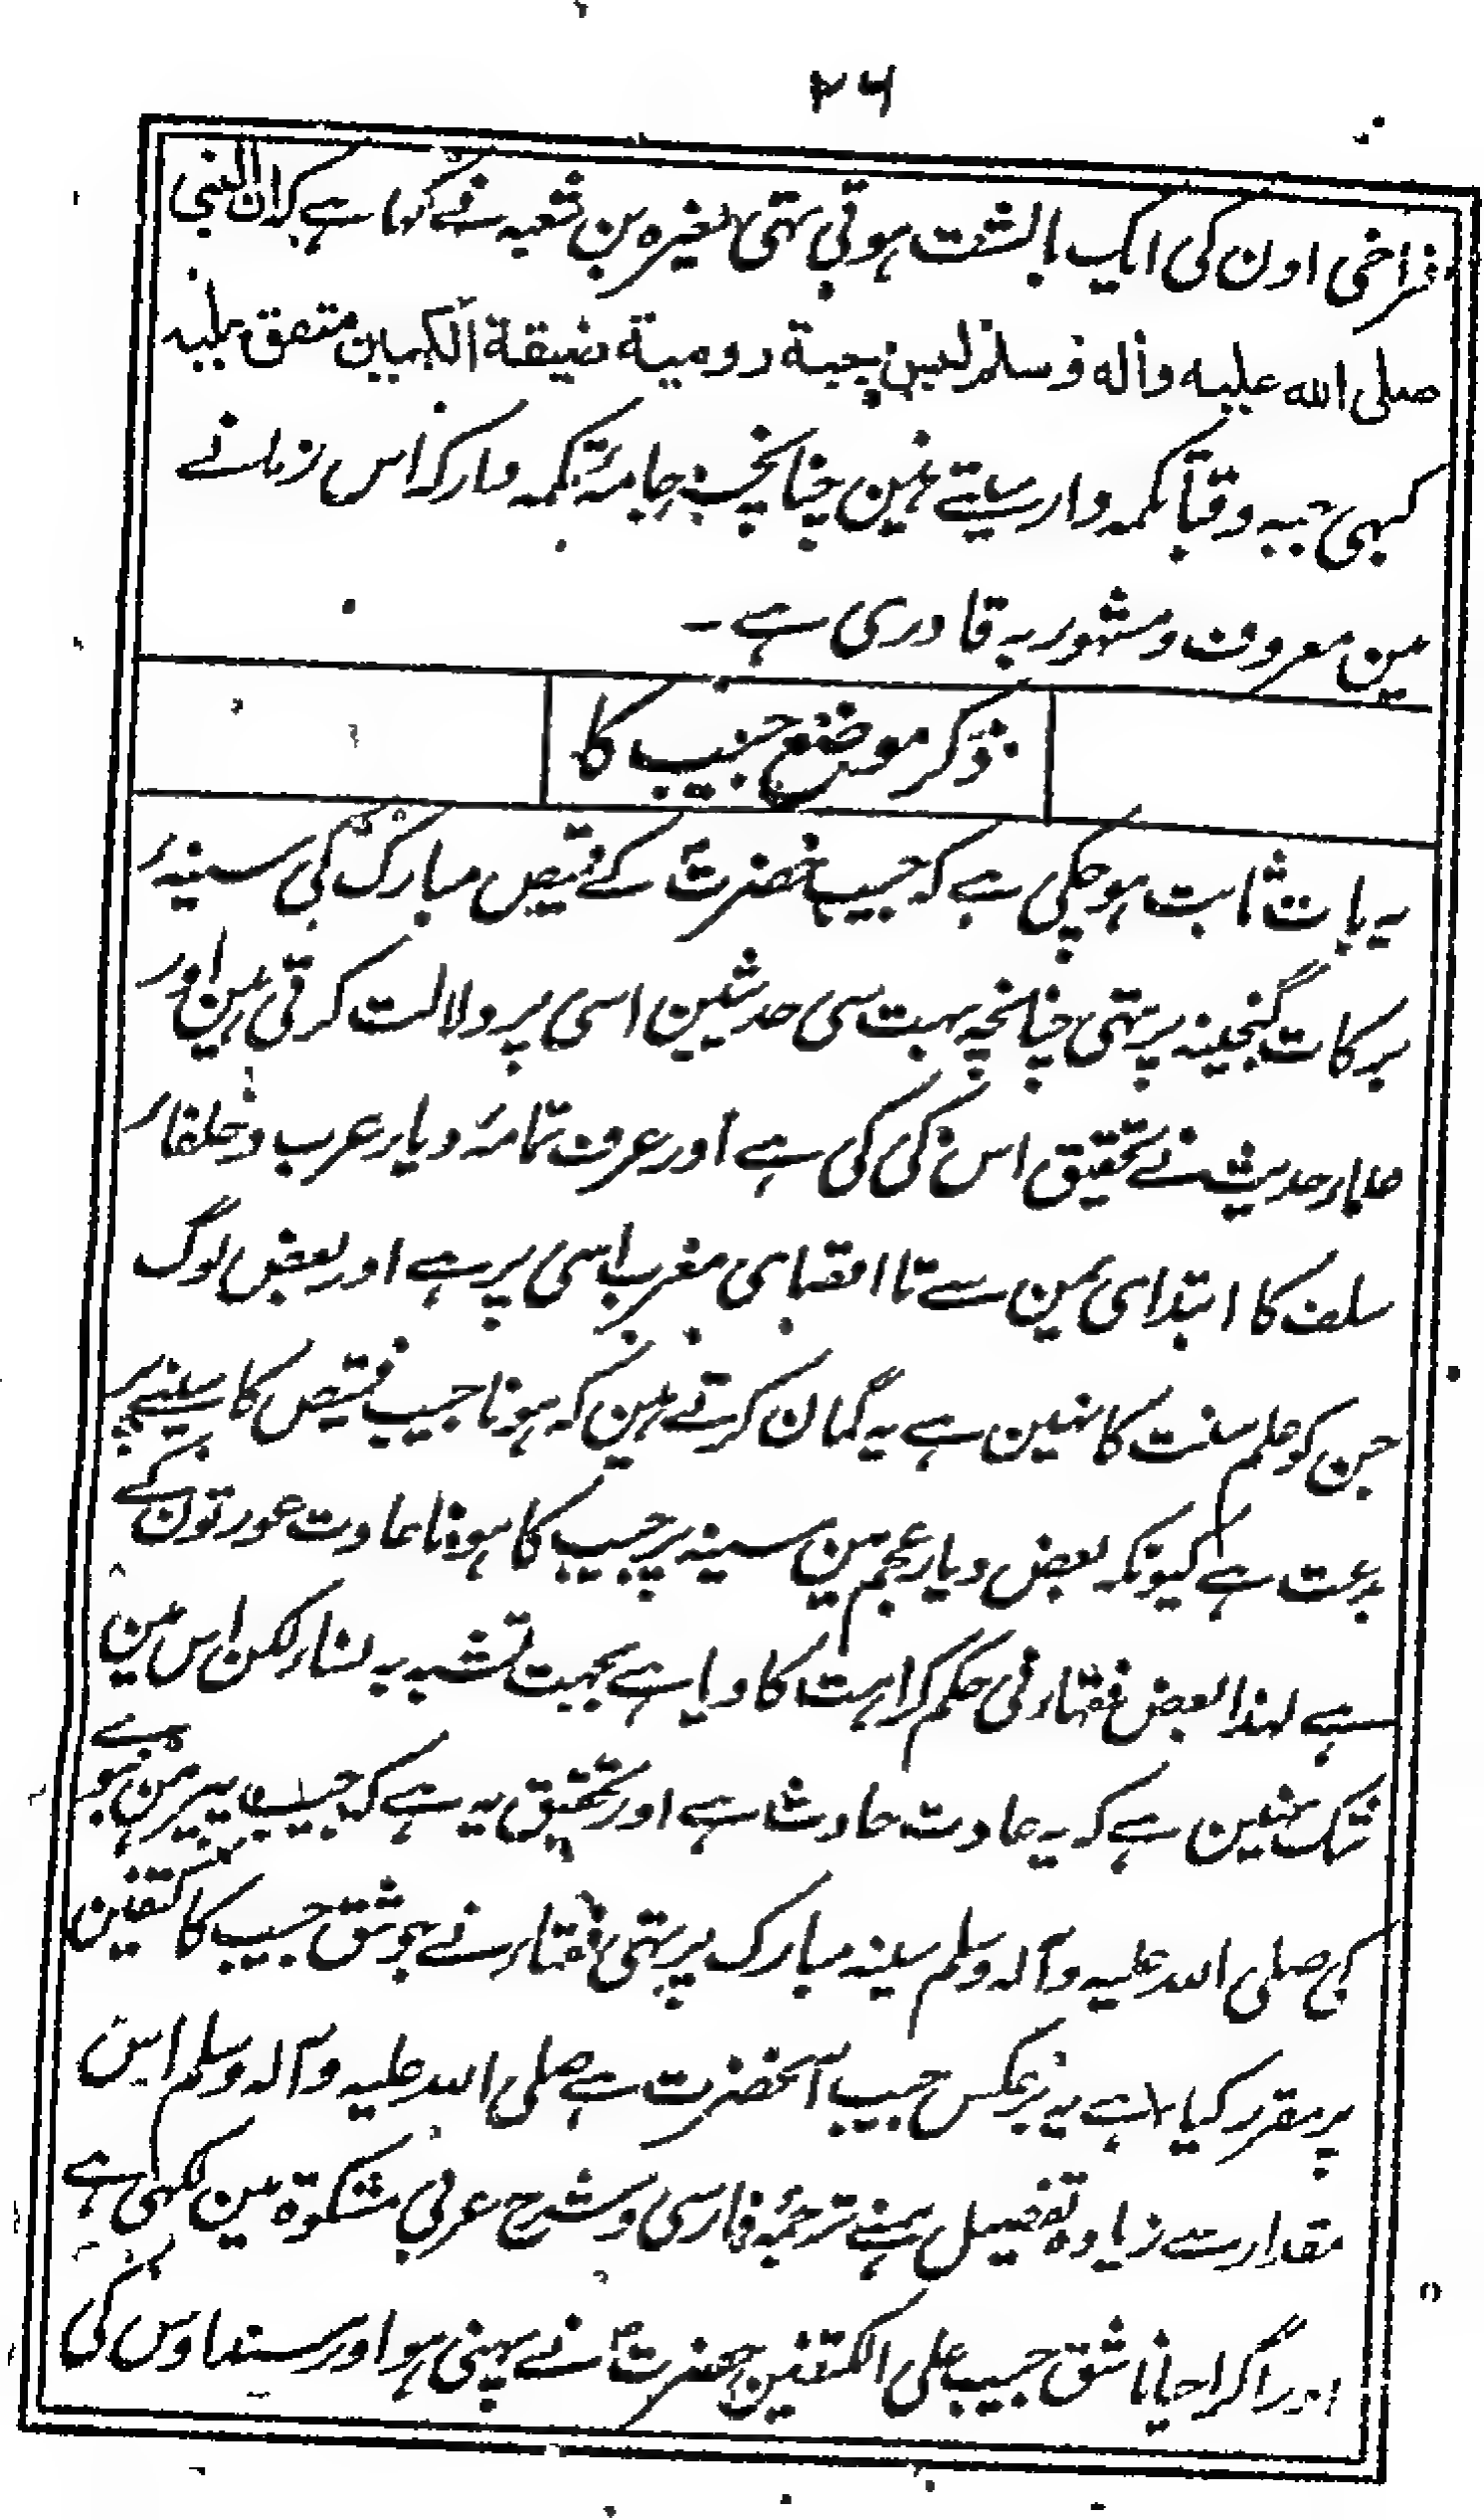 ۲۶
فراخی اون کی ایک بالشت ہوتی تہی مغیرہ بن شعبہ نے کہا ہے کہ ان النبی
صلی الله علیه واٰله وسلم لبس جبة رومیة ضیقة الکمین متفق علیه
کبہی جبہ و قبا تکمہ وار سیتے ہین چنانچہ جامۂ تکمہ وار کہ اس زمانے
مین معروف و مشہور بہ قادری ہے۔
ذکر موضع جیب کا
یہ بات ثابت ہوچکی ہے کہ جیب حضرتؐ کے قمیص مبارک کی سینہ
برکات گنجینہ پر تہی چنانچہ بہت سی حدیثین اسی پر دلالت کرتی ہین اور
علمار حدیث نے تحقیق اس کی کی ہے اور عرف تمامۂ دیار عرب و خلفار
سلف کا ابتدای یمن سے تا اقصای مغرب اسی پر ہے اور بعض لوگ
جن کو علم سنت کا نہین ہے یہ گمان کرتے ہین کہ ہونا جیب قمیص کا سینے پر
بدعت ہے کیونکہ بعض دیار عجم مین سینہ پر جیب کا ہونا عادت عورتون کے
ہے لہذا بعض فقہار نی حکم کراہت کا دیا ہے بجہت تشبہ بہ نسار لکن اس مین
شک نہین ہے کہ یہ عادت حادث ہے اور تحقیق یہ ہے کہ جیب پیرہن نبوے
کی صلی اللہ علیہ وآلہ وسلم سینہ مبارک پر تہی فقہار نے جو شق جیب کا کتفین
پر مقرر کیا ہے یہ برعکس جیب آنحضرت ہے صلی اللہ علیہ وآلہ وسلم اس
مقدار سے زیادہ تفصیل ہمنے ترجمۂ فارسی و شرح عربی مشکوۃ مین لکہی ہے
اور اگر احیانا شق جیب علی الکتفین حضرتؐ نے پہنی ہو اور سند اوس کی